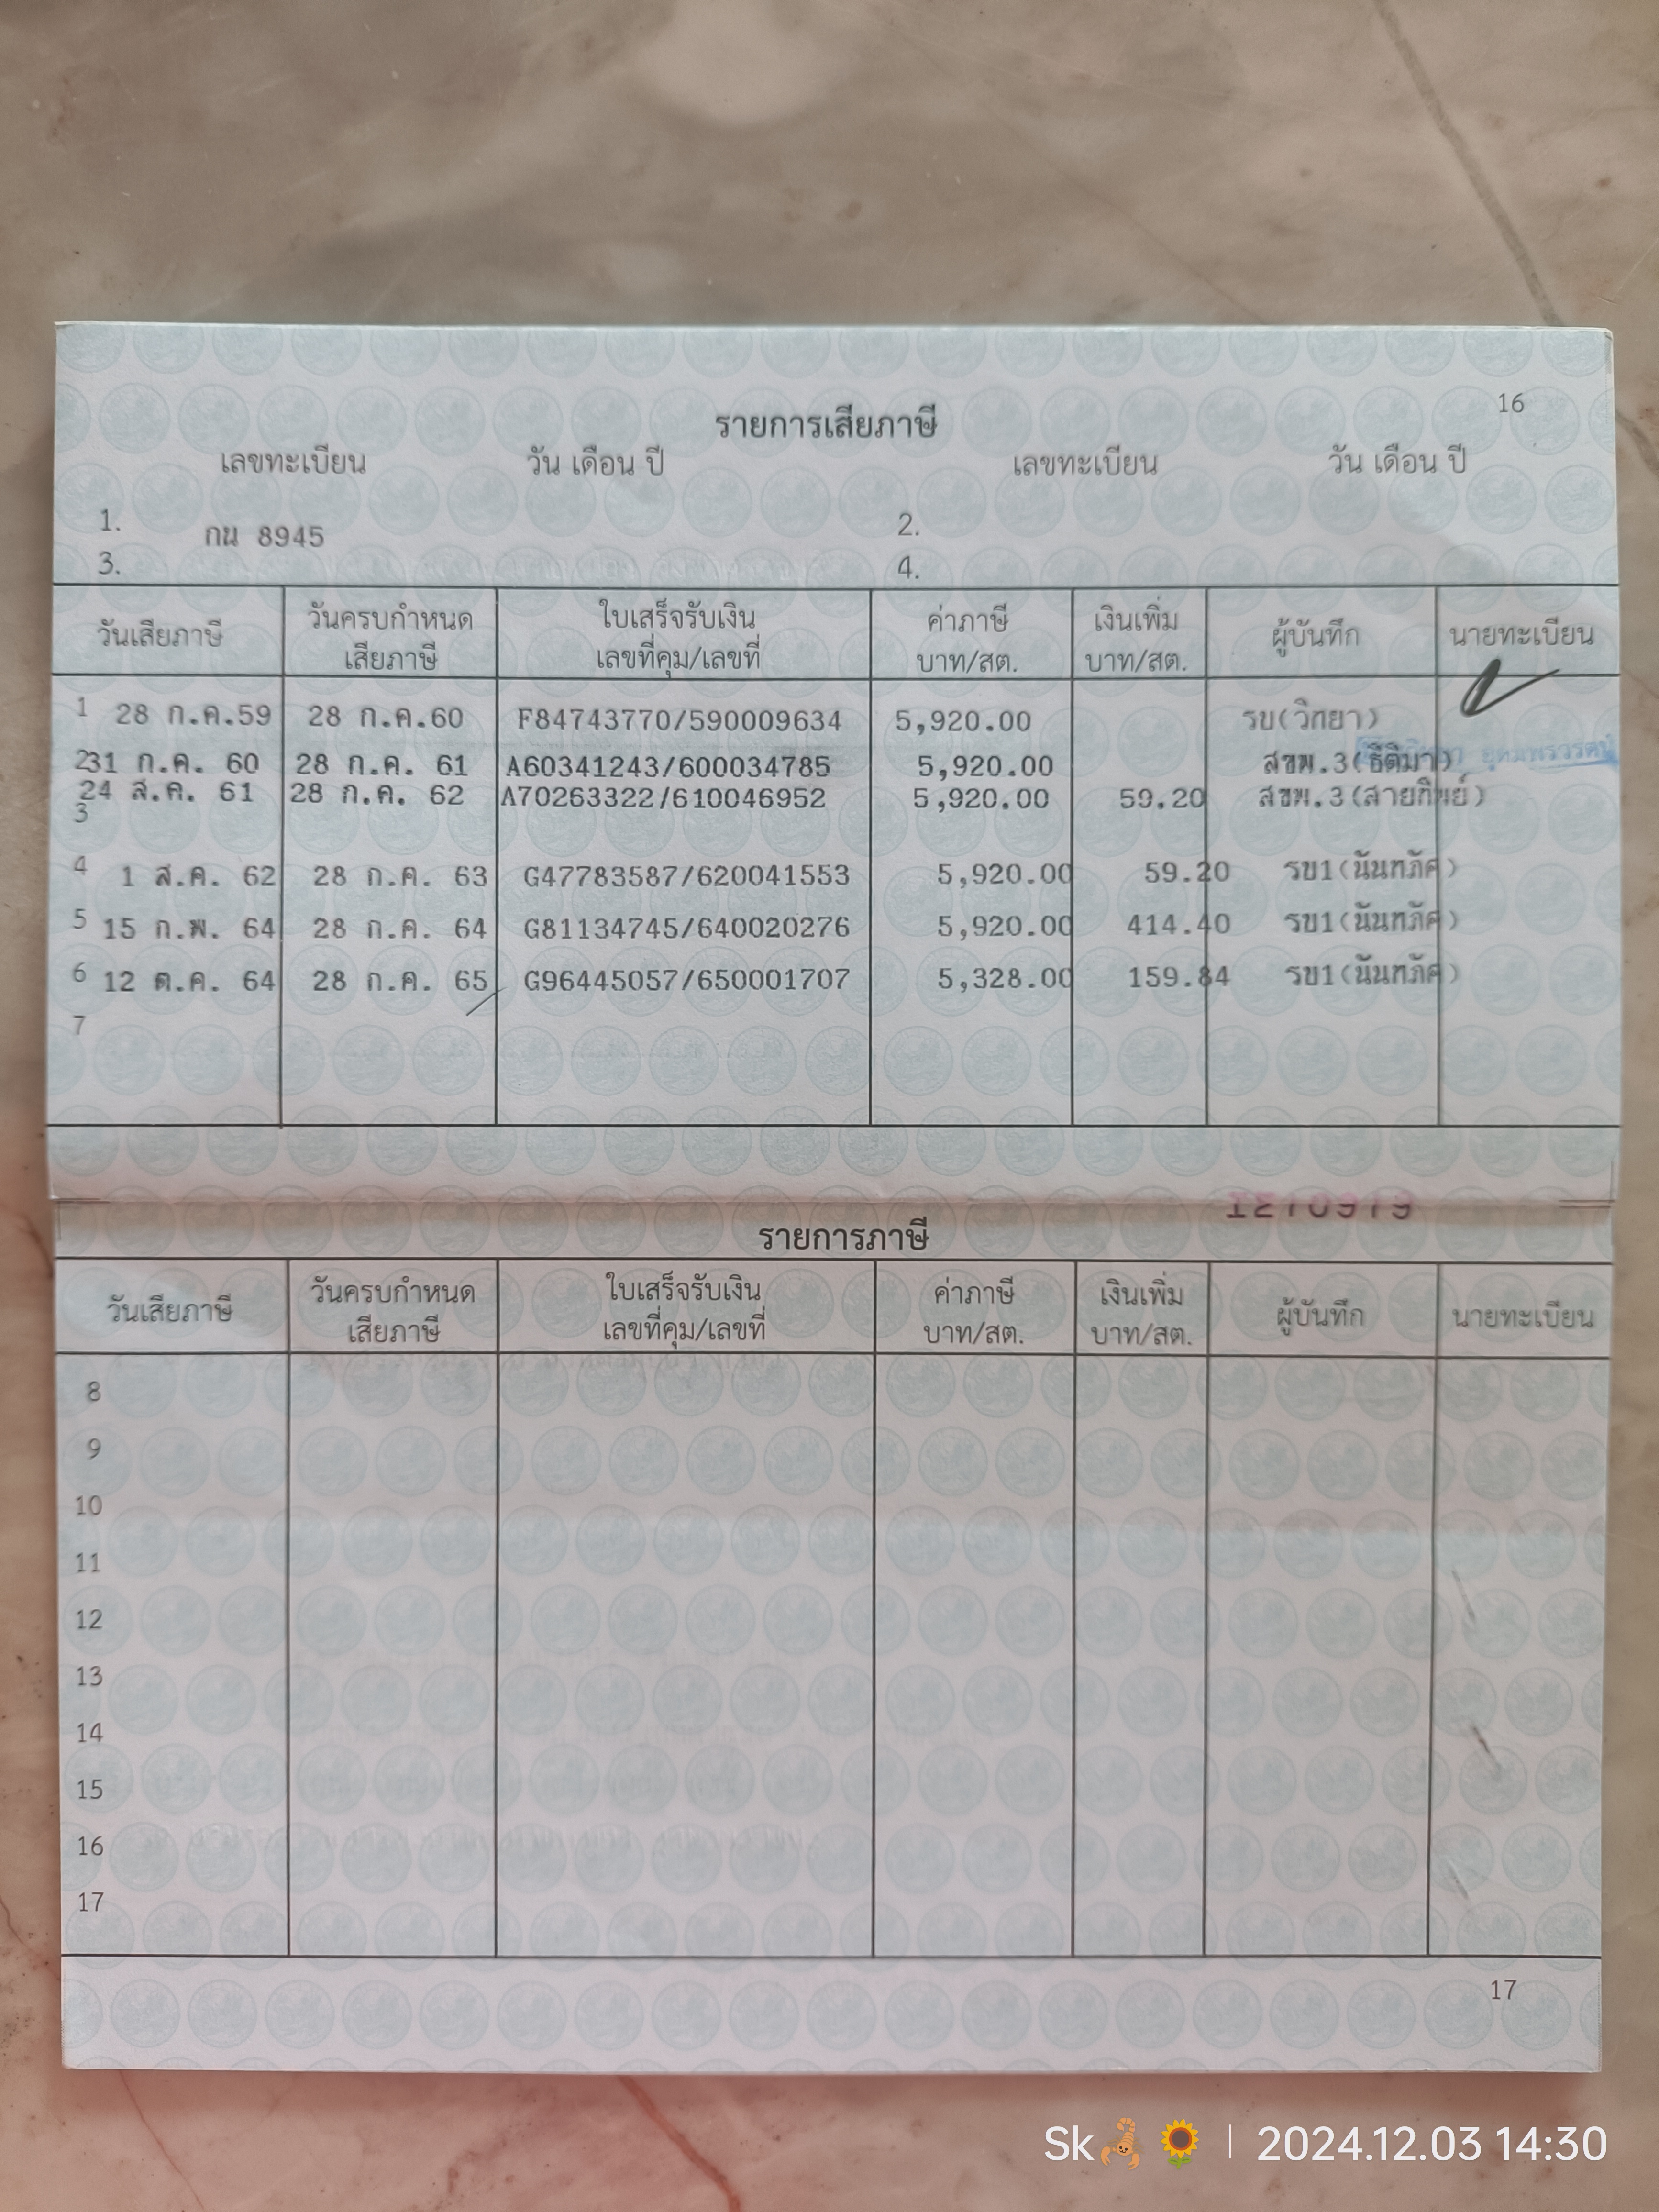 16
รายการเสียภาษี
เลขทะเบียน วัน เดือน ปี เลขทะเบียน วัน เดือน ปี
1. กน 8945 2.
3. 4.
วันเสียภาษี วันครบกำหนดเสียภาษี ใบเสร็จรับเงิน เลขที่คุม/เลขที่ ค่าภาษี บาท/สต. เงินเพิ่ม บาท/สต. ผู้บันทึก นายทะเบียน
1 28 ก.ค.59 28 ก.ค.60 F84743770/590009634 5,920.00 รบ(วิทยา)
2 31 ก.ค. 60 28 ก.ค. 61 A60341243/600034785 5,920.00 สขพ.3(ธิติมา)
3 24 ส.ค. 61 28 ก.ค. 62 A70263322/610046952 5,920.00 59.20 สขพ.3(สายทิพย์)
4 1 ส.ค. 62 28 ก.ค. 63 G47783587/620041553 5,920.00 59.20 รบ1(นันทภัค)
5 15 ก.พ. 64 28 ก.ค. 64 G81134745/640020276 5,920.00 414.40 รบ1(นันทภัค)
6 12 ต.ค. 64 28 ก.ค. 65 G96445057/650001707 5,328.00 159.84 รบ1(นันทภัค)
7
รายการภาษี
วันเสียภาษี วันครบกำหนดเสียภาษี ใบเสร็จรับเงิน เลขที่คุม/เลขที่ ค่าภาษี บาท/สต. เงินเพิ่ม บาท/สต. ผู้บันทึก นายทะเบียน
8
9
10
11
12
13
14
15
16
17
17
Sk🦂🌻 | 2024.12.03 14:30